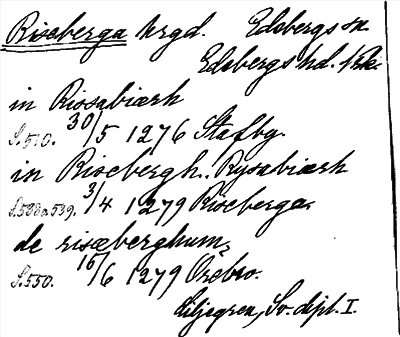 Riseberga hrgd. Edsbergs sn.
Edsbergs hd.
in Risabiærh
S. 510. 30/5 1276 Stafbg.
in Risebergh., Rysabiærh
S. 538 o 539. 3/4 1279 Riseberga.
de risæberghum,
S. 550. 16/6 1279 Örebro.
Liljegren, Sv. dipl. I.